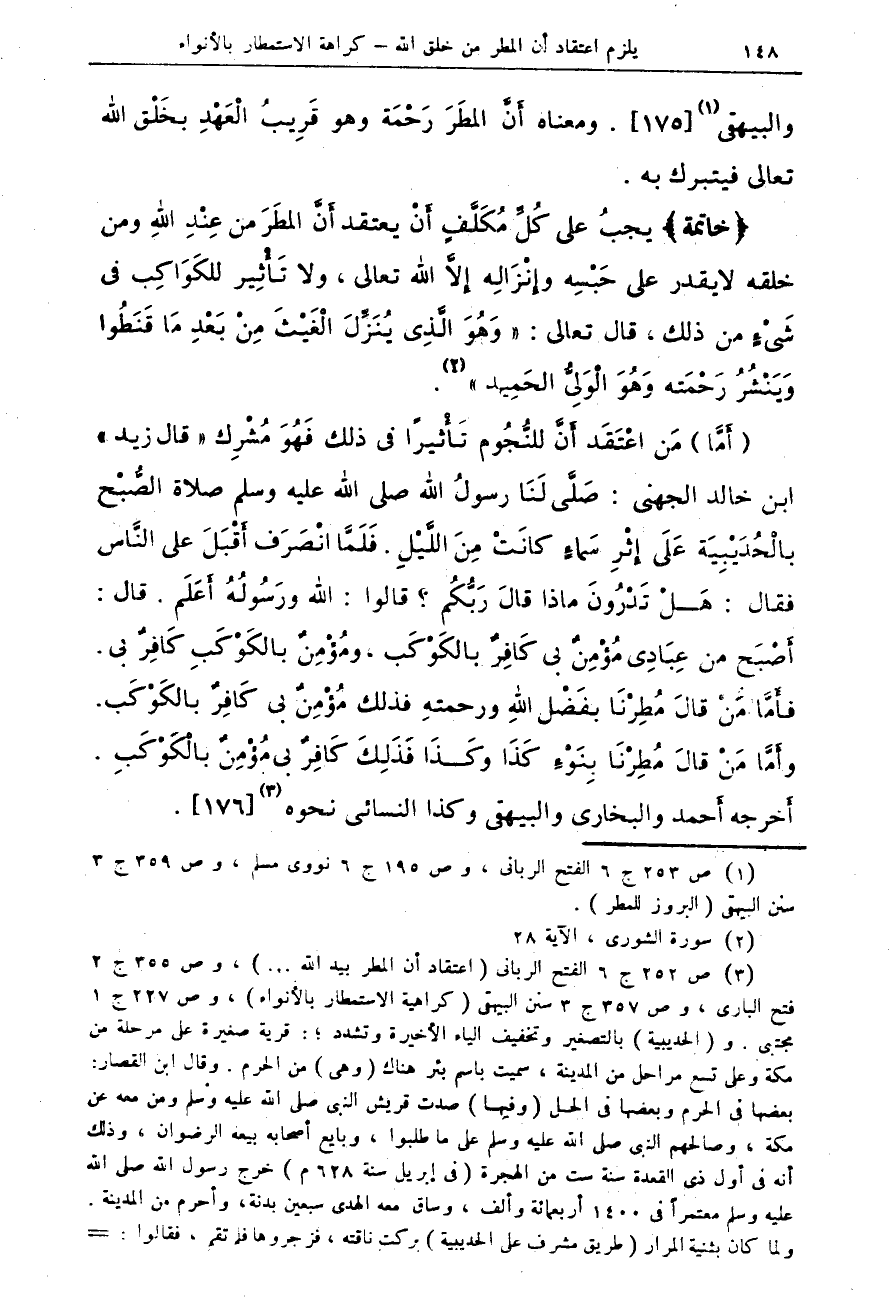 ١٤٨ يلزم اعتقاد أن المطر من خلق الله – كراهة الاستمطار بالأنواء
والبيهقى(١) [١٧٥] . ومعناه أَنَّ المطَرَ رَحْمَة وهو قَرِيبُ الْعَهْدِ بخَلْق الله
تعالى فيتبرك به .
﴿خاتمة﴾ يجبُ على كُلِّ مُكَلَّفٍ أَنْ يعتقد أَنَّ المطَرَ من عِنْدِ اللهِ ومن
خلقه لايقدر على حَبْسِه وإِنْزَالِه إِلاَّ الله تعالى ، ولا تَأْثِير للكَوَاكِب فى
شَىْءٍ من ذلك ، قال تعالى : « وَهُوَ الَّذِى يُنَزِّلَ الْغَيْثَ مِنْ بَعْدِ مَا قَنَطُوا
وَيَنْشُرُ رَحْمَته وَهُوَ الْوَلِىُّ الحَمِيد »(٢) .
( أَمَّا ) مَن اعْتَقَد أَنَّ للنُّجُوم تَأْثيرًا فى ذلك فَهُوَ مُشْرِك « قال زيد »
ابن خالد الجهنى : صَلَّى لَنَا رسولُ الله صلى الله عليه وسلم صلاة الصُّبْح
بالْحُدَيْبِيَة عَلَى إِثْرِ سَمَاءٍ كانَتْ مِنَ اللَّيْلِ . فَلَمَّا انْصَرَف أَقْبَلَ على النَّاس
فقال : هَـلْ تَدْرُونَ ماذا قالَ رَبُّكُم ؟ قالوا : الله ورَسُولُهُ أَعلَم . قال :
أَصْبَح من عِبَادِى مُؤْمِنٌ بى كَافِرٌ بالكَوْكَب ، ومُؤْمِنٌ بالكَوْكَبِ كَافِرٌ بى .
فأَمَّا مَنْ قالَ مُطِرْنَا بفَضْل اللهِ ورحمتهِ فذلك مُؤْمِنٌ بى كَافِرٌ بالكَوْكَب .
وأَمَّا مَنْ قالَ مُطِرْنَا بِنَوْءِ كَذَا وكَـذَا فَذَلِكَ كَافِرٌ بى مُؤْمِنٌ بالْكَوْكَبِ .
أخرجه أحمد والبخارى والبيهقى وكذا النسائى نحوه(٣) [١٧٦] .
(١) ص ٢٥٣ ج ٦ الفتح الربانى ، و ص ١٩٥ ج ٦ نووى مسلم ، و ص ٣٥٩ ج ٣
سنن البيهقى ( البروز للمطر ) .
(٢) سورة الشورى ، الآية ٢٨
(٣) ص ٢٥٢ ج ٦ الفتح الربانى ( اعتقاد أن المطر بيد الله ... ) ، و ص ٣٥٥ ج ٢
فتح البارى ، و ص ٣٥٧ ج ٣ سنن البيهقى ( كراهية الاستمطار بالأنواء ) ، و ص ٢٢٧ ج ١
مجتبى . و ( الحديبية ) بالتصغير وتخفيف الياء الأخيرة وتشدد ؛ : قرية صغيرة على مرحلة من
مكة وعلى تسع مراحل من المدينة ، سميت باسم بئر هناك ( وهى ) من الحرم . وقال ابن القصار:
بعضها فى الحرم وبعضها فى الحل ( وفيها ) صدت قريش النبى صلى الله عليه وسلم ومن معه عن
مكة ، وصالحهم النبى صلى الله عليه وسلم على ما طلبوا ، وبايع أصحابه بيعة الرضوان ، وذلك
أنه فى أول ذى القعدة سنة ست من الهجرة ( فى إبريل سنة ٦٢٨ م ) خرج رسول الله صلى الله
عليه وسلم معتمراً فى ١٤٠٠ أربعمائة وألف ، وساق معه الهدى سبعين بدنة، وأحرم من المدينة .
ولما كان بثنية المرار ( طريق مشرف على الحديبية ) بركت ناقته ، فزجروها فلم تقم ، فقالوا : =